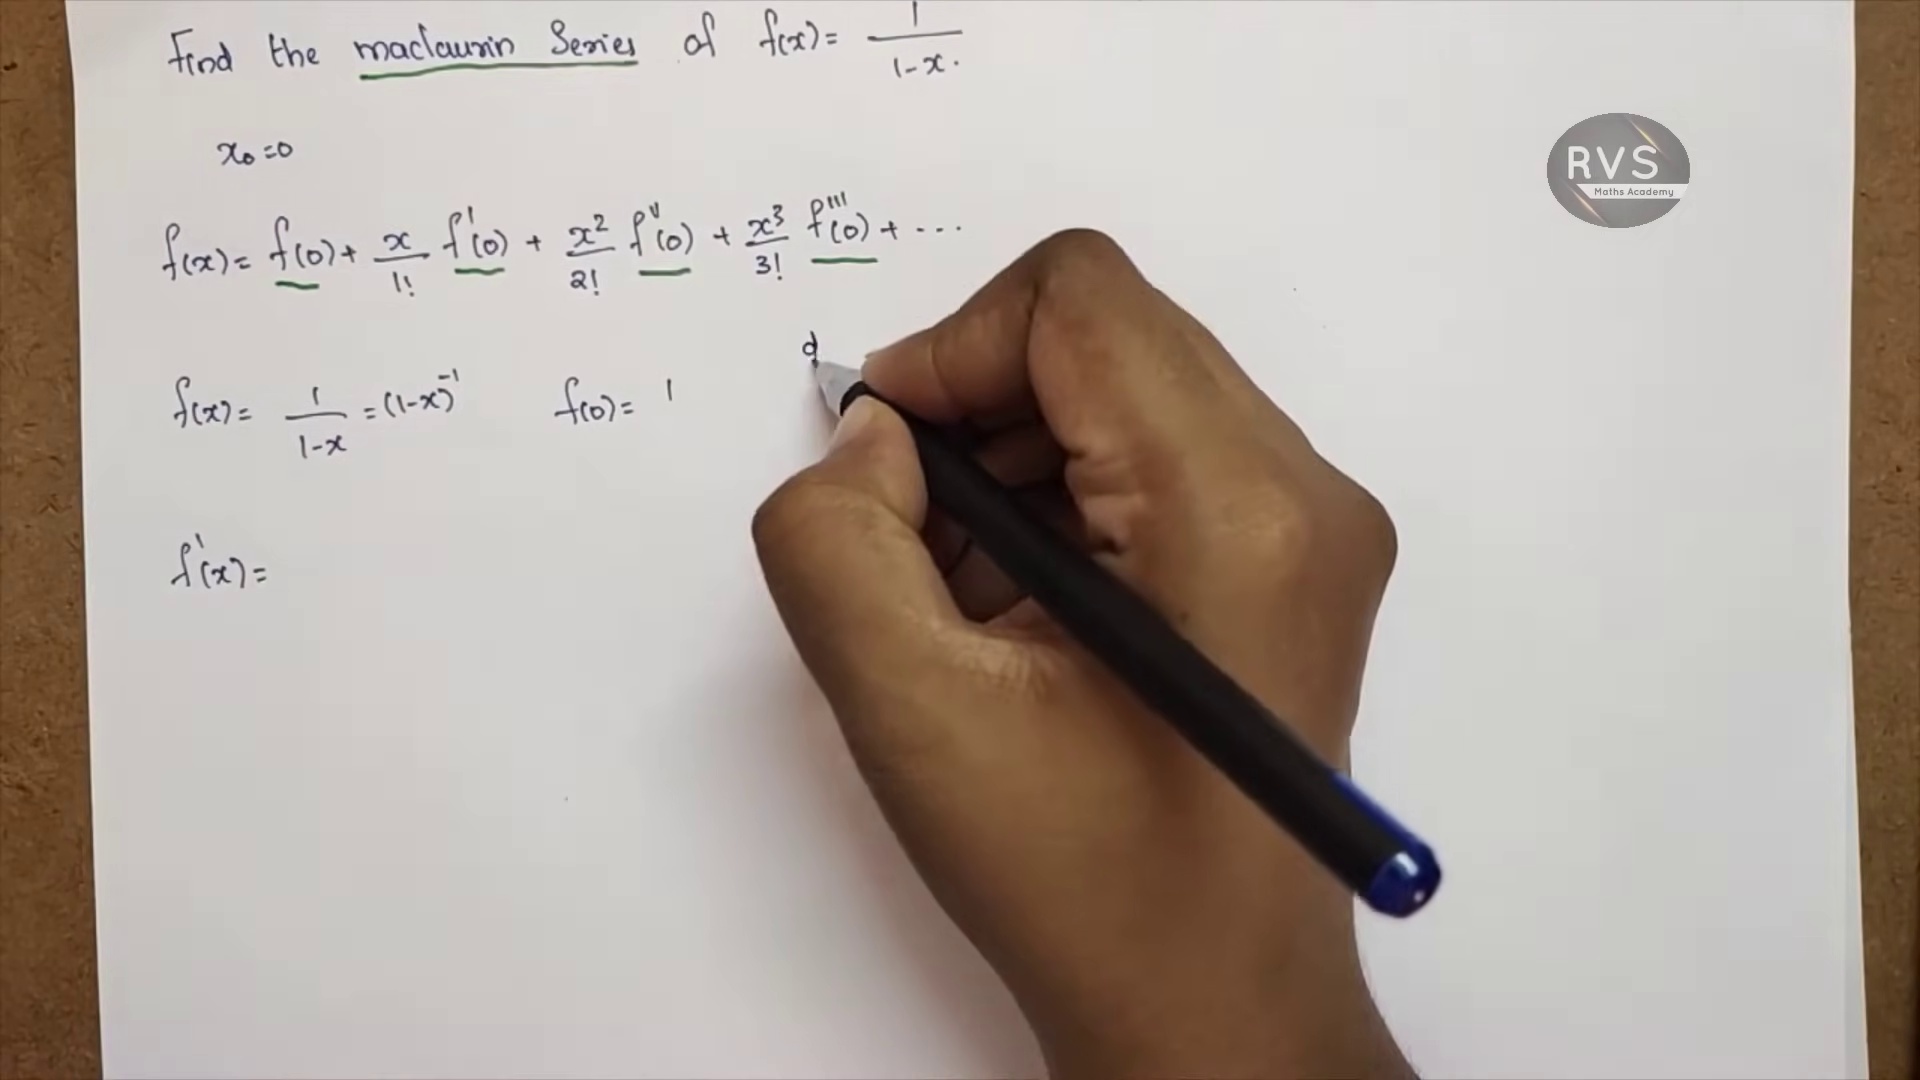 Find the maclaurin Series of f(x) = 1/(1-x).
RVS
Maths Academy
x₀=0
f(x) = f(0) + x/1! f'(0) + x²/2! f''(0) + x³/3! f'''(0) + ...
d
f(x) = 1/(1-x) = (1-x)⁻¹ f(0) = 1
f'(x) =